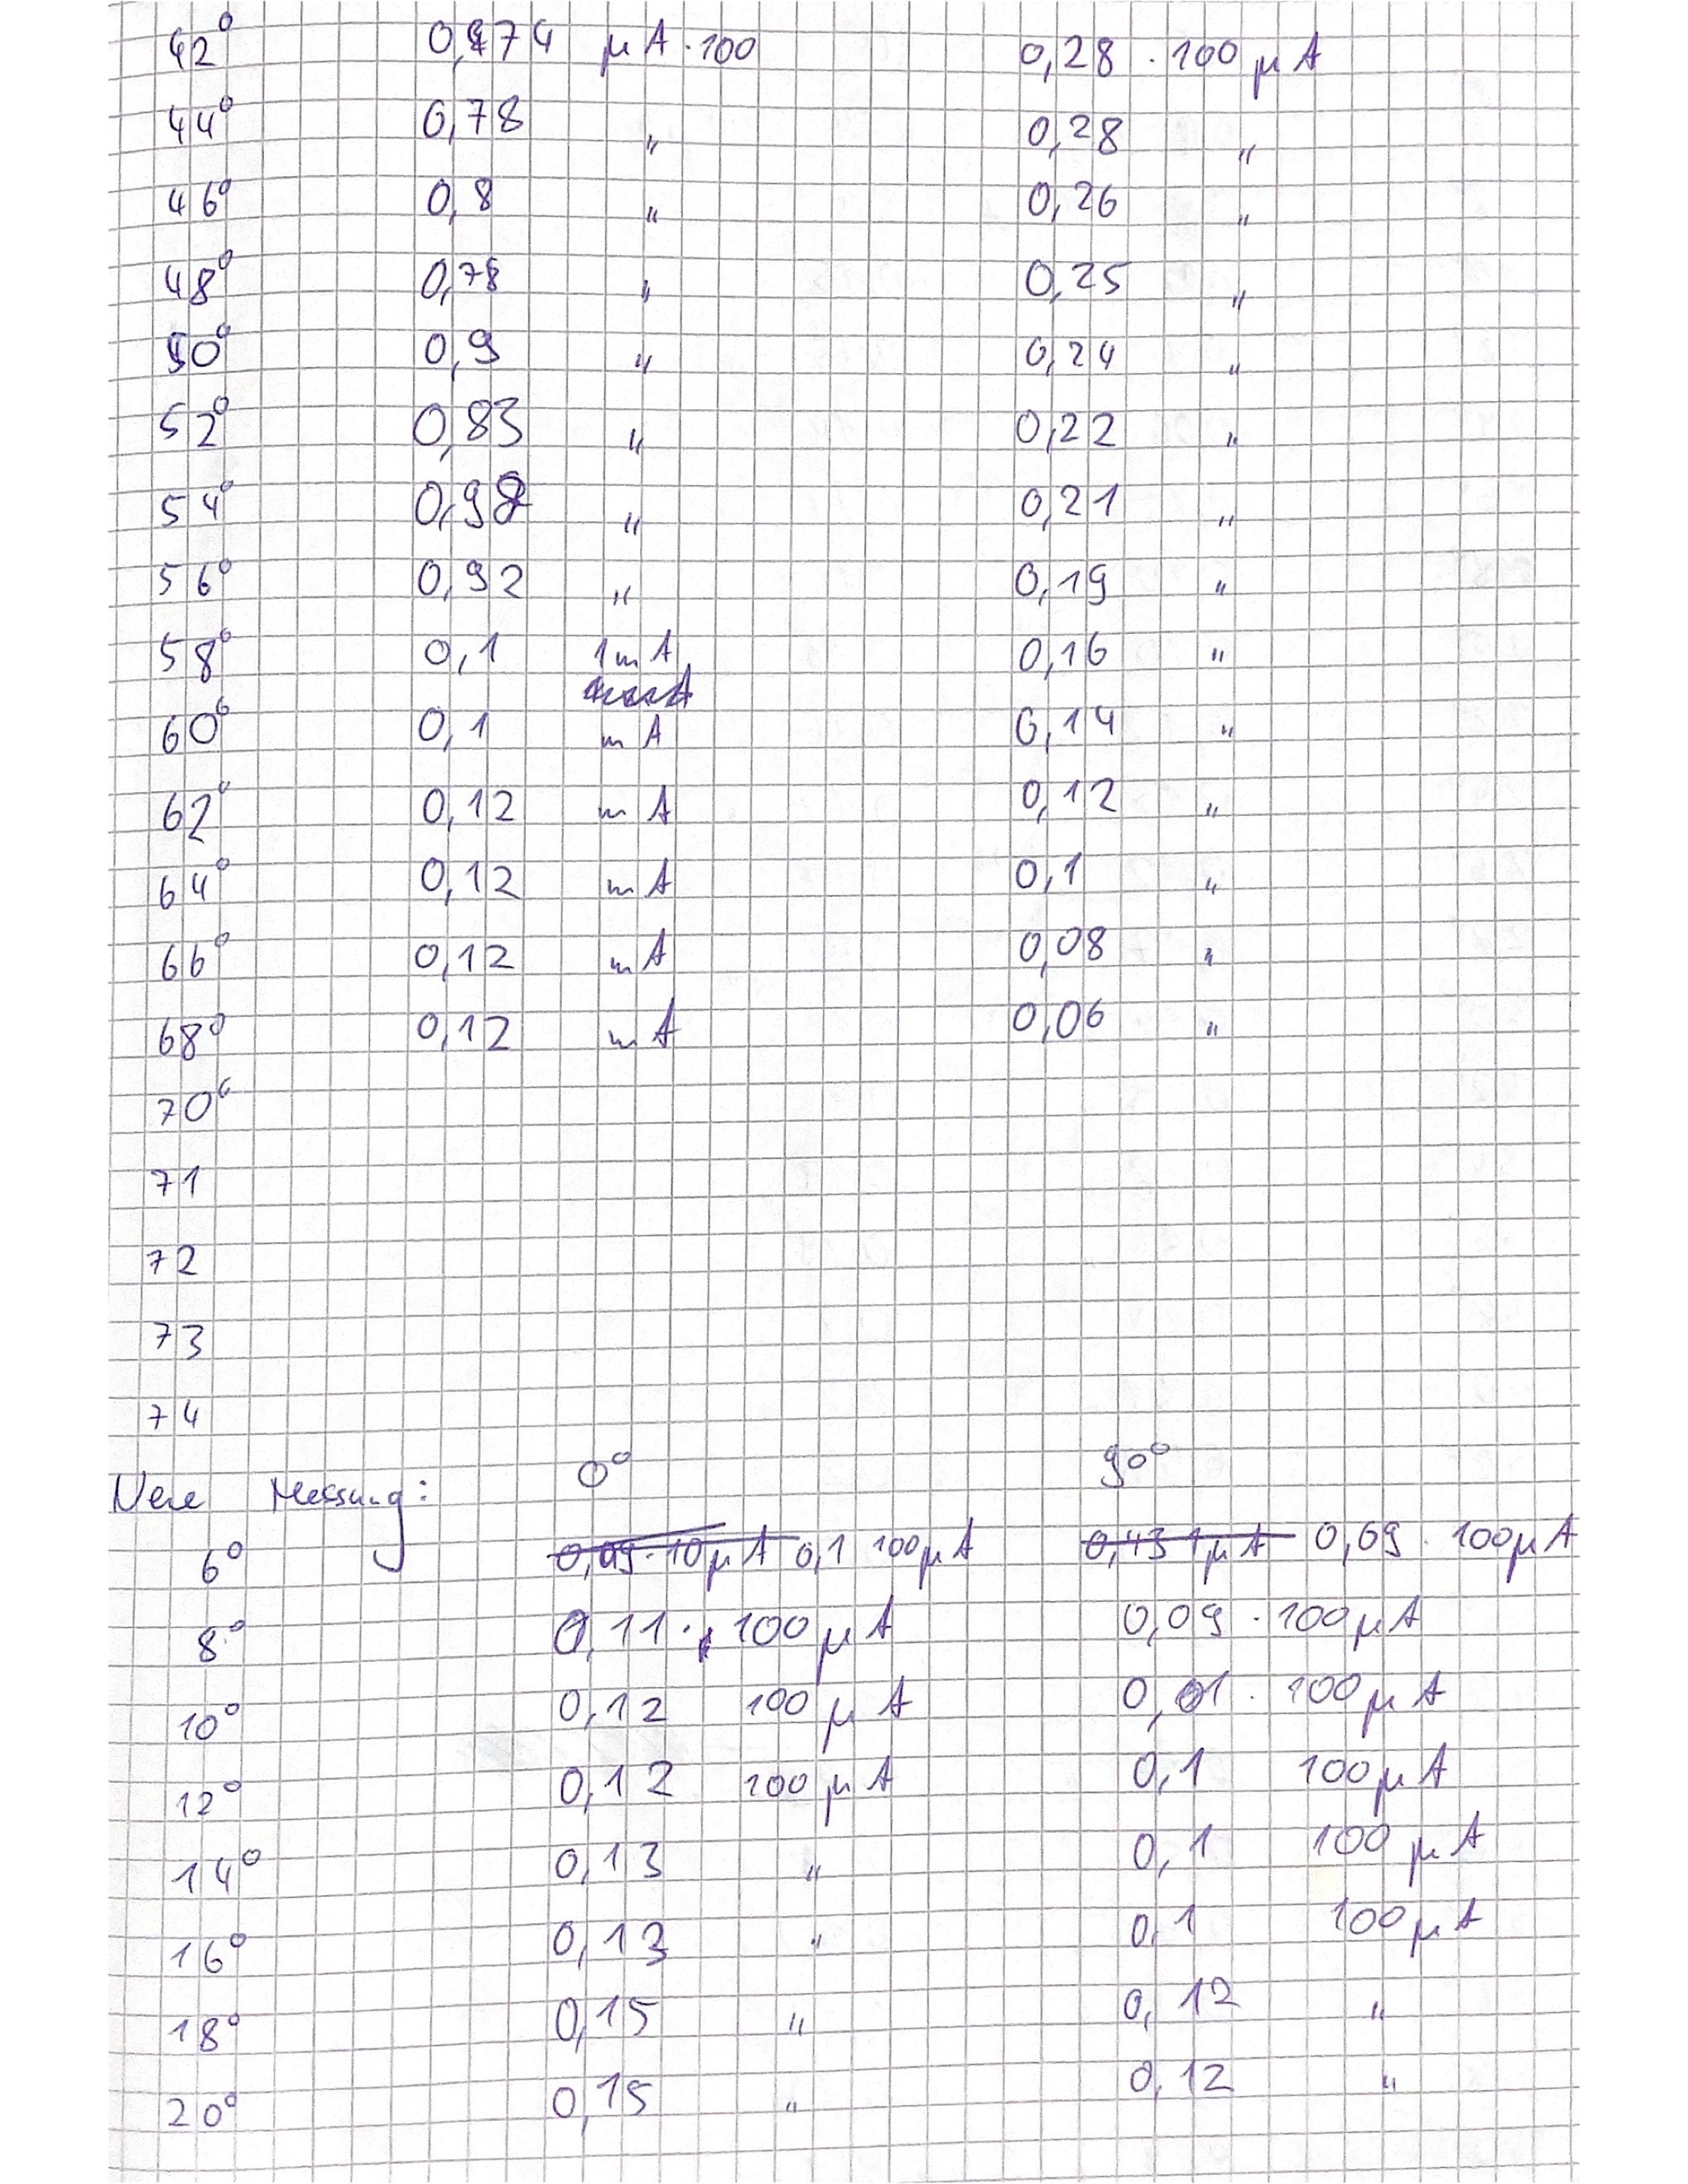 42° 0,74 µA · 100 0,28 · 100 µA
44° 0,78 " 0,28 "
46° 0,8 " 0,26 "
48° 0,78 " 0,25 "
50° 0,9 " 0,24 "
52° 0,83 " 0,22 "
54° " 0,21 "
56° 0,92 " 0,19 "
58° 0,1 1mA 0,16 "
60° 0,1 mA 0,14 "
62° 0,12 mA 0,12 "
64° 0,12 mA 0,1 "
66° 0,12 mA 0,08 "
68° 0,12 mA 0,06 "
70°
71
72
73
74
Neue Messung: 0° 90°
6° 0,09 · 10µA 0,1 100µA 0,43 1µA 0,09 · 100µA
8° 0,11 · 100µA 0,09 · 100µA
10° 0,12 100µA 0,01 · 100µA
12° 0,12 100µA 0,1 100µA
14° 0,13 " 0,1 100µA
16° 0,13 " 0,1 100µA
18° 0,15 " 0,12 "
20° 0,15 " 0,12 "